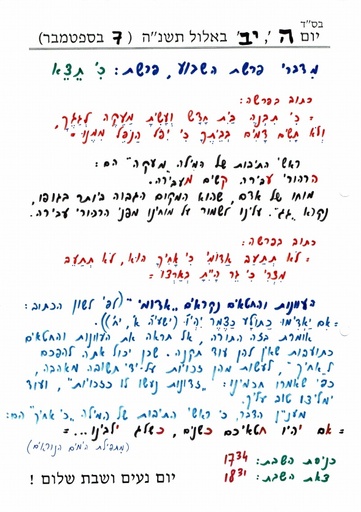 בס"ד
יום ה', י"ב באלול תשנ"ה (7 בספטמבר)
מדברי פרשת השבוע, פרשת: כי תצא
כתוב בפרשה:
= כִּי תִבְנֶה בַּיִת חָדָשׁ וְעָשִׂיתָ מַעֲקֶה לְגַגֶּךָ,
וְלֹא תָשִׂים דָּמִים בְּבֵיתֶךָ כִּי יִפֹּל הַנֹּפֵל מִמֶּנּוּ =
ראשי התיבות של המילה "מעקה" הם:
הרהורי עבירה קשים מעבירה.
מוחו של אדם, שהוא המקום הגבוה ביותר בגופו,
נקרא "גג". עלינו לשמור על מוחינו מפני הרהורי עבירה.
כתוב בפרשה:
= לֹא תְתַעֵב אֲדוֹמִי כִּי אָחִיךָ הוּא, לֹא תְתַעֵב
מִצְרִי כִּי גֵר הָיִיתָ בְאַרְצוֹ =
העוונות והחטאים נקראים "אדומי" (לפי לשון הכתוב:
=אם יאדימו כתולע כצמר יהיו (ישעיה א', י"ח)).
אומרת בזה התורה, אל תראה את העוונות והחטאים
כתועבות שאין להן עוד תקנה. שכן יכול אתה להפכם
לאחיך, לעשות מהן זכויות על-ידי תשובה מאהבה,
כפי שאמרו חכמינו: "זדונות נעשו לו כזכויות", ועוד
ימליצו טוב עליך.
מענין הדבר, כי ראשי התיבות של המילה "כי אחיך" הם:
= אם יהיו חטאיכם כשנים, כשלג ילבינו... =
(מתפילת הימים הנוראים)
כניסת השבת: 17:34
צאת השבת: 18:31
יום נעים ושבת שלום !